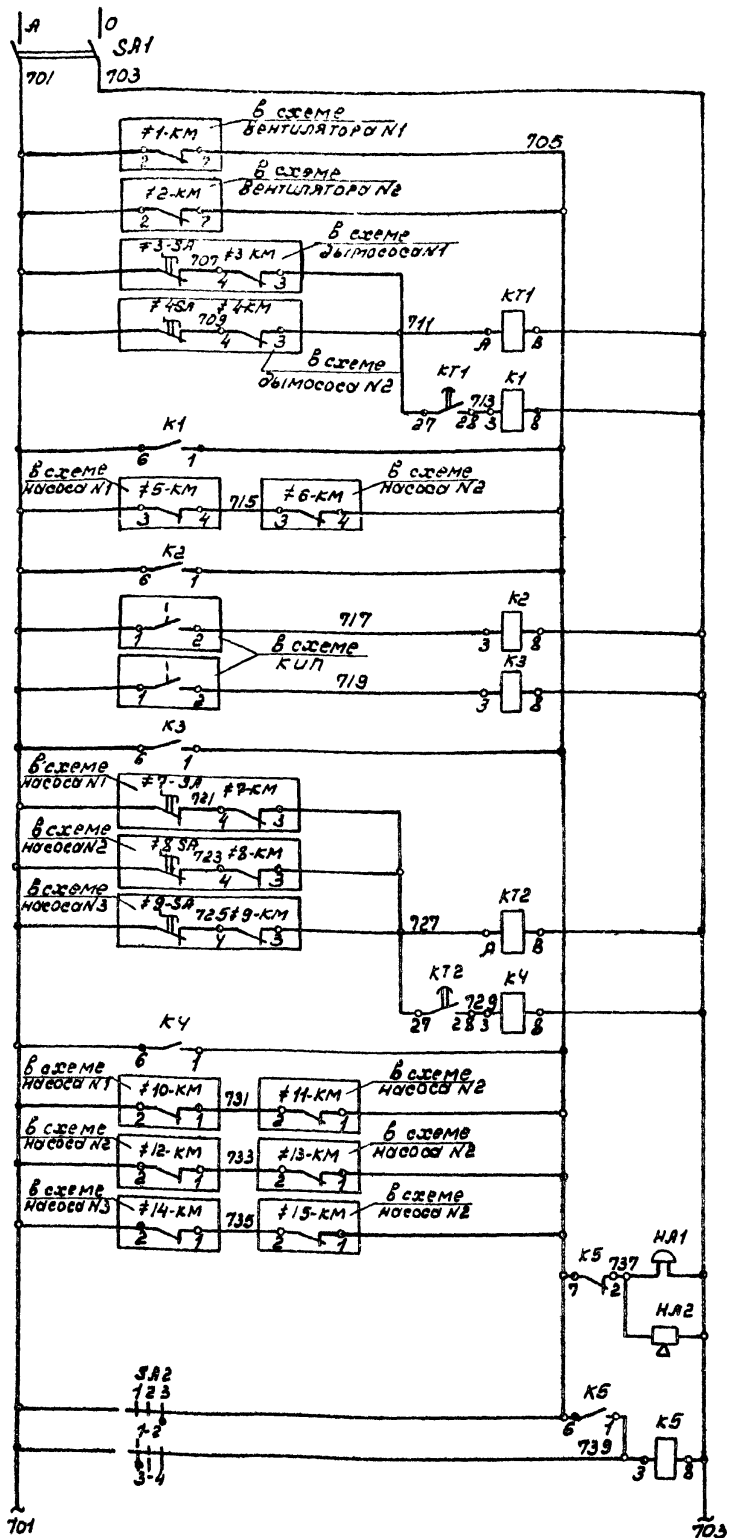 A O
SA1
701 703
в схеме
вентилятора N1
≠1-КМ
2 7
705
в схеме
вентилятора N2
≠2-КМ
2 7
≠3-SA 707 ≠3-КМ
4 3
в схеме
дымососа N1
≠4SA 709 ≠4-КМ
4 3
в схеме
дымососа N2
711
KT1
A B
KT1
27 28 713 3
K1
8
K1
6 1
в схеме
насоса N1
≠5-КМ
3 4
715
≠6-КМ
3 4
в схеме
насоса N2
K2
6 1
1 2
717
K2
3 8
в схеме
КИП
1 2
719
K3
3 8
K3
6 1
в схеме
насоса N1
≠7-SA 721 ≠7-КМ
4 3
в схеме
насоса N2
≠8SA 723 ≠8-КМ
4 3
в схеме
насоса N3
≠9-SA 725 ≠9-КМ
4 3
727
KT2
A B
KT2
27 28 729 3
K4
8
K4
6 1
в схеме
насоса N1
≠10-КМ
2 1
731
≠11-КМ
2 1
в схеме
насоса N2
в схеме
насоса N2
≠12-КМ
2 1
733
≠13-КМ
2 1
в схеме
насоса N2
в схеме
насоса N3
≠14-КМ
2 1
735
≠15-КМ
2 1
в схеме
насоса N2
K5
7 2
737
HA1
HA2
SA2
1 2 3
1-2
3-4
K5
6 1
739
K5
3 8
701 703